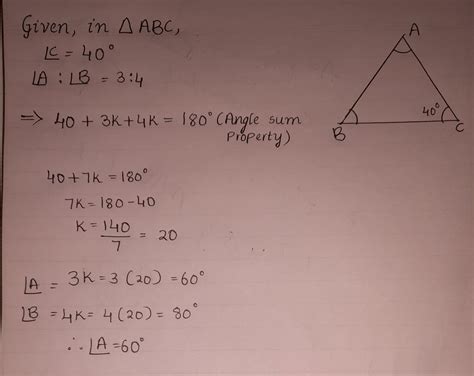 Given, in △ABC,
∠C = 40°
∠A : ∠B = 3:4
⇒ 40 + 3K+4K = 180° (Angle sum
Property)
40+7K = 180°
7K = 180-40
K = 140/7 = 20
∠A = 3K = 3 (20) = 60°
∠B = 4K = 4 (20) = 80°
∴ ∠A = 60°
A
B
40°
C